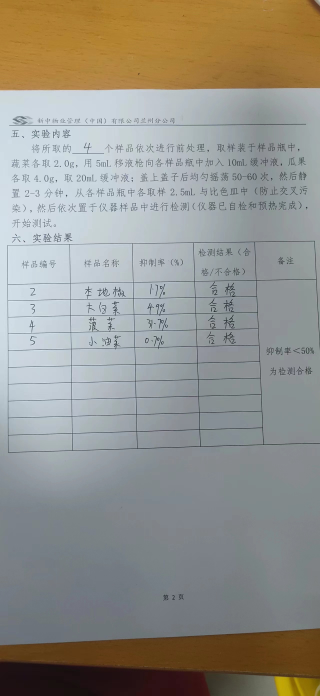 新中物业管理（中国）有限公司兰州分公司
五、实验内容
将所取的 4 个样品依次进行前处理，取样装于样品瓶中，
蔬菜各取2.0g，用5mL移液枪向各样品瓶中加入10mL缓冲液，瓜果
各取4.0g，取20mL缓冲液；盖上盖子后均匀摇荡50-60次，然后静
置2-3分钟，从各样品瓶中各取样2.5mL与比色皿中（防止交叉污
染），然后依次置于仪器样品中进行检测（仪器已自检和预热完成），
开始测试。
六、实验结果
样品编号 样品名称 抑制率（%） 检测结果（合格/不合格） 备注
2 本地椒 合格
3 大白菜 4.9% 合格
4 菠菜 合格
5 小油菜 0.7% 合格
抑制率＜50%
为检测合格
第2页